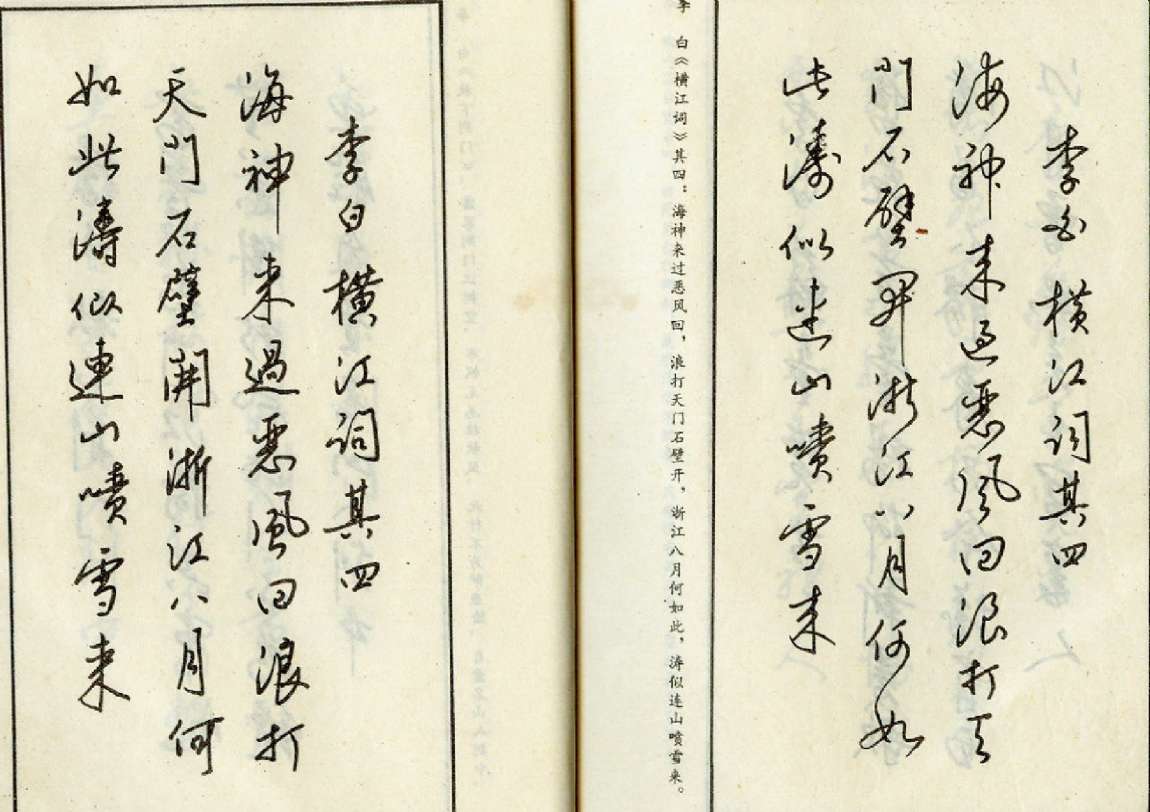 李白横江词其四
海神来过恶风回浪打天
门石壁开浙江八月何如
此涛似连山喷雪来
李 白《横江词》其四：海神来过恶风回，浪打天门石壁开，浙江八月何如此，涛似连山喷雪来。
李白橫江詞其四
海神来過惡風回浪打
天門石壁開浙江八月何
如此濤似連山噴雪来